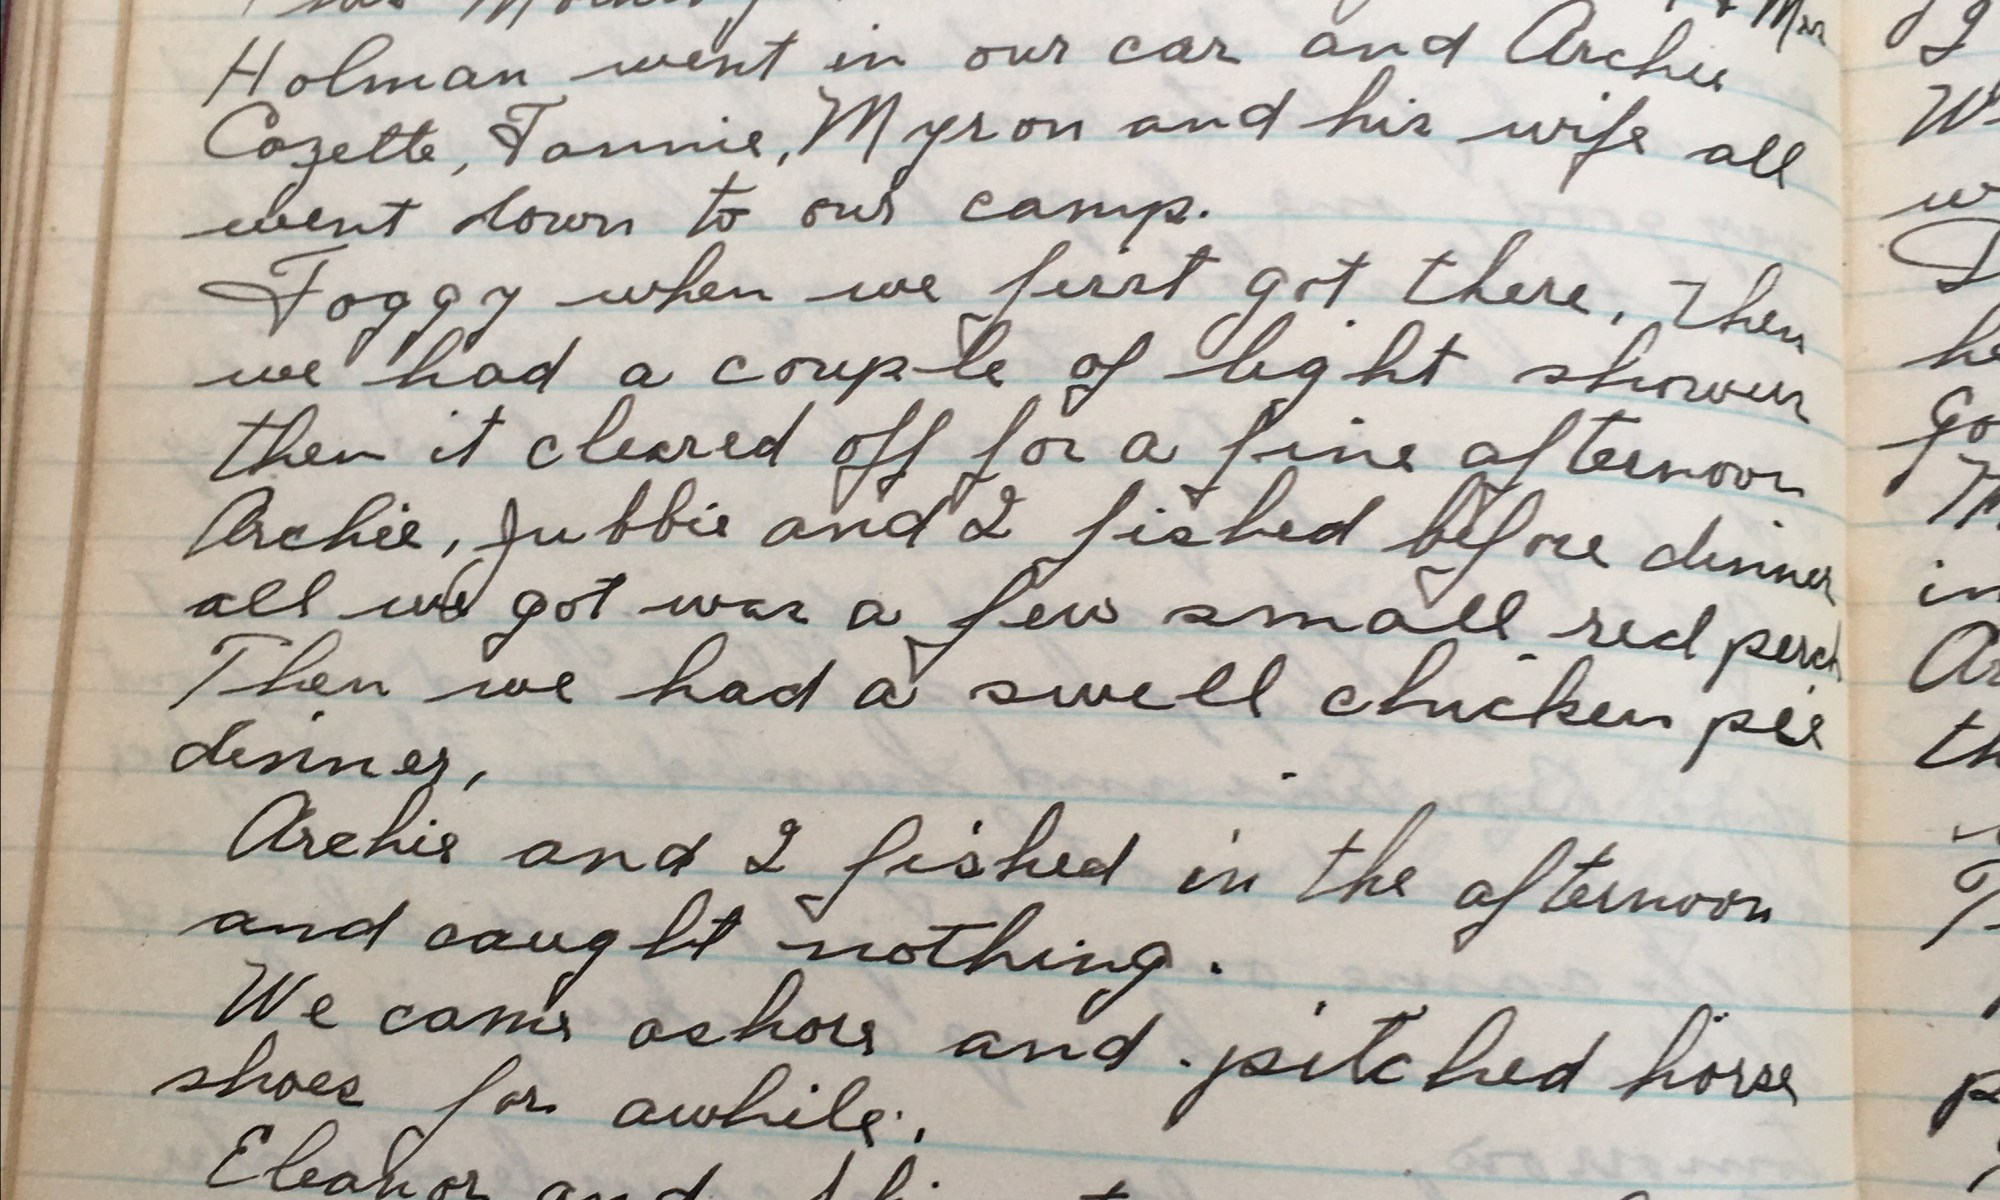 & Mrs
Holman went in our car and Archie
Cozette, Fannie, Myron and his wife all
went down to our camp.
Foggy when we first got there, Then
we had a couple of light showers
then it cleared off for a fine afternoon
Archie, Jubbie and I fished before dinner
all we got was a few small red perch
Then we had a swell chicken pie
dinner,
Archie and I fished in the afternoon
and caught nothing.
We came ashore and pitched horse
shoes for awhile.
Eleanor and